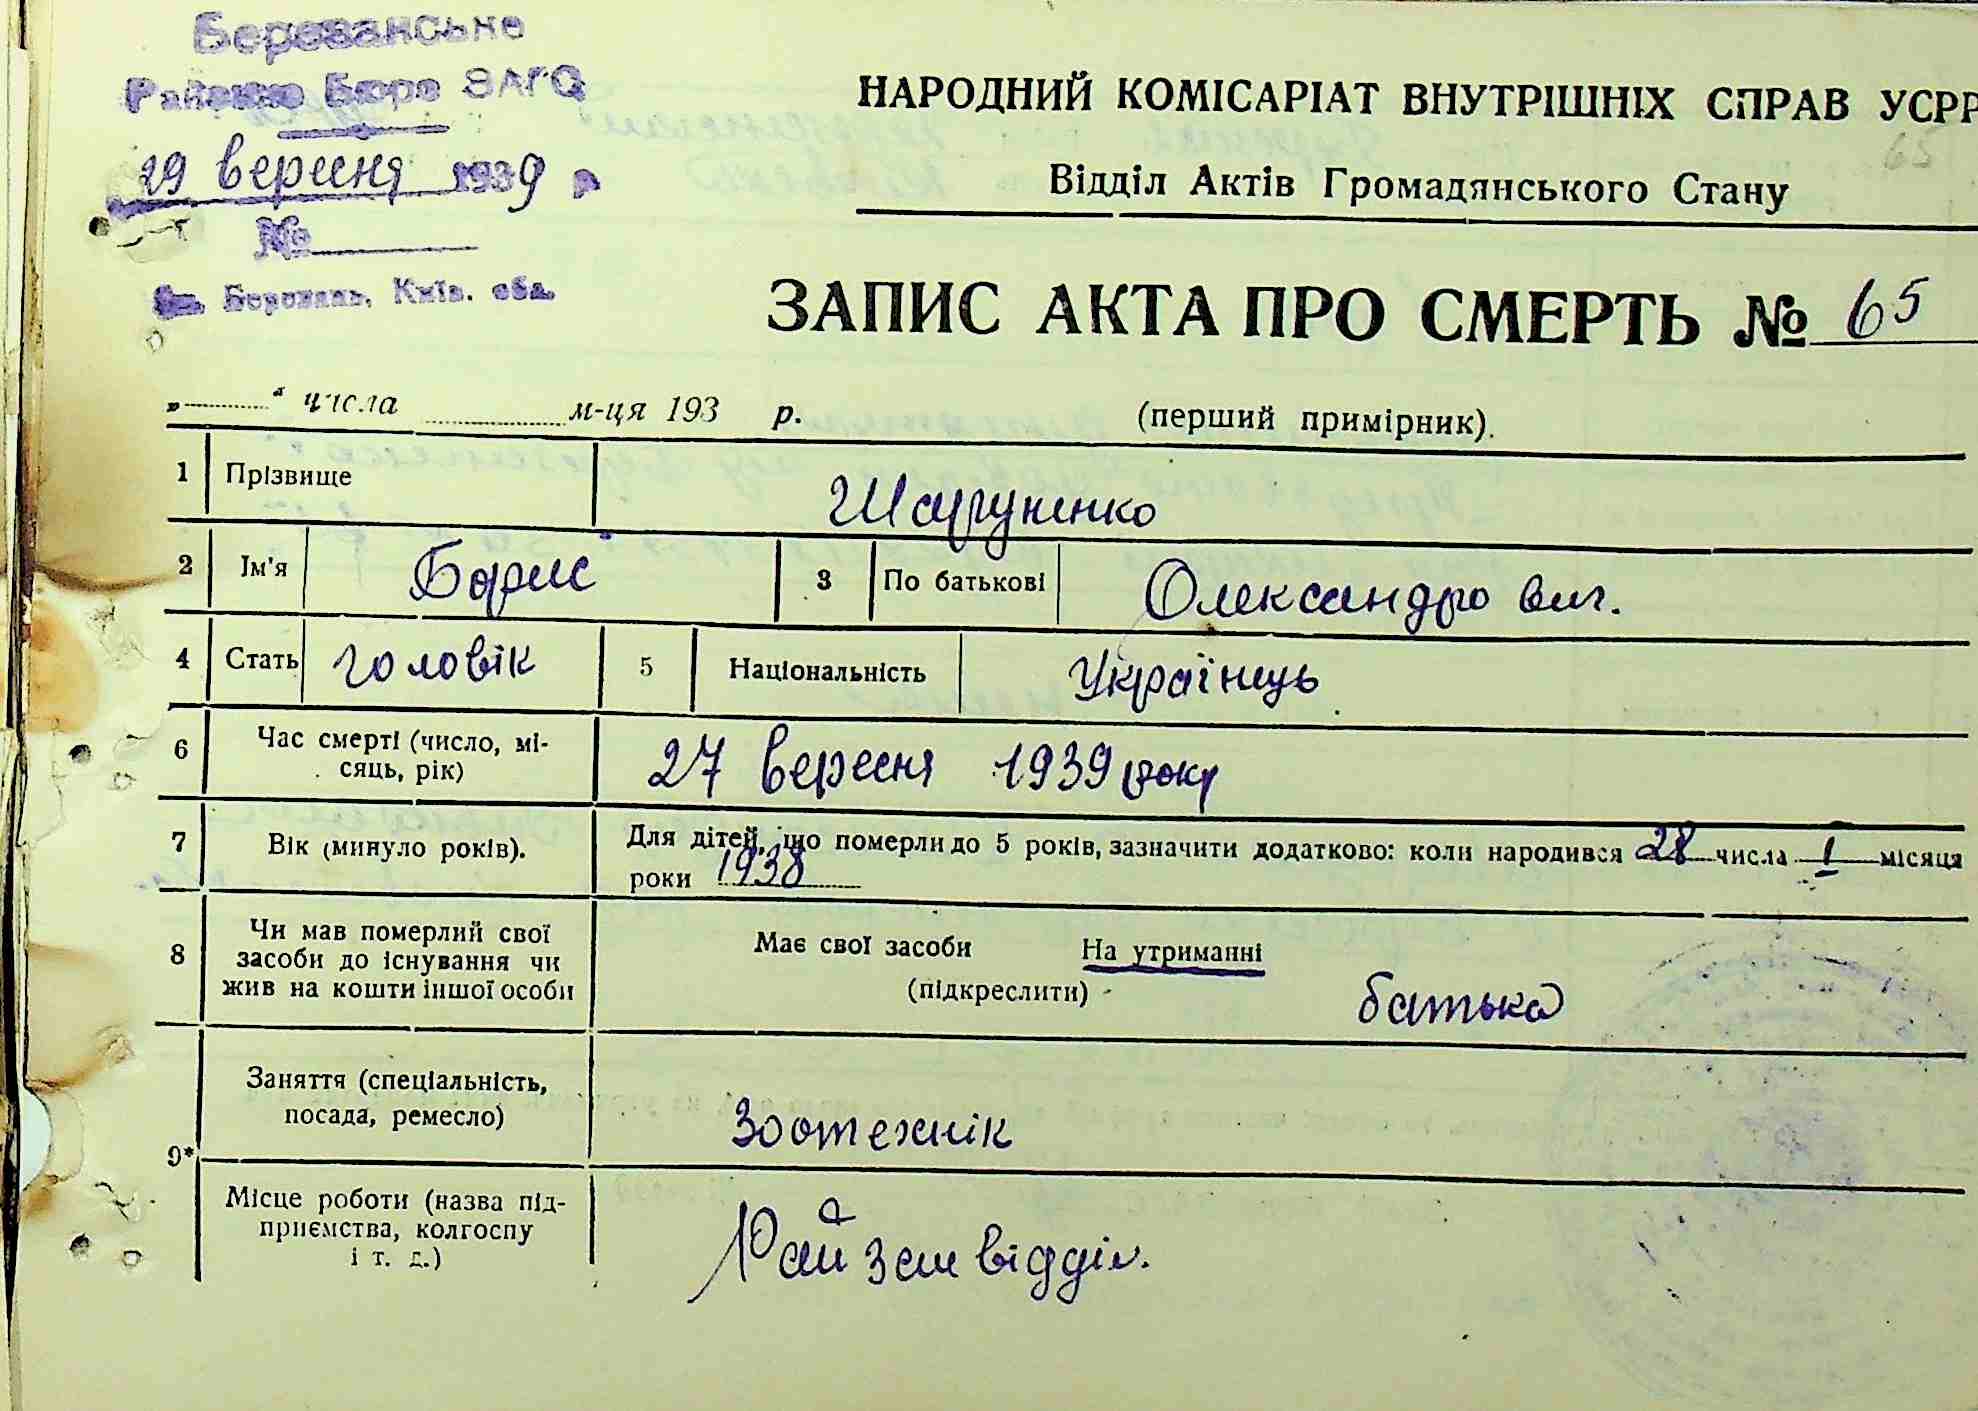 Березанське
Районне Бюро ЗАГС
29 вересня 1939 р
№
Березань, Київ. обл.
НАРОДНИЙ КОМІСАРІАТ ВНУТРІШНІХ СПРАВ УСРР
65
Відділ Актів Громадянського Стану
ЗАПИС АКТА ПРО СМЕРТЬ № 65
„ “ числа м-ця 193 р. (перший примірник).
1 Прізвище
2 Ім'я Борис 3 По батькові Олександрович.
4 Стать чоловік 5 Національність Українець
6 Час смерті (число, мі-
сяць, рік) 27 вересня 1939 року
7 Вік (минуло років). Для дітей, що померли до 5 років, зазначити додатково: коли народився 28 числа 1 місяця
роки 1938
8 Чи мав померлий свої
засоби до існування чи
жив на кошти іншої особи
Має свої засоби На утриманні
(підкреслити) батька
9* Заняття (спеціальність,
посада, ремесло) Зоотехнік
Місце роботи (назва під-
приємства, колгоспу
і т. д.) Райземвідділ.